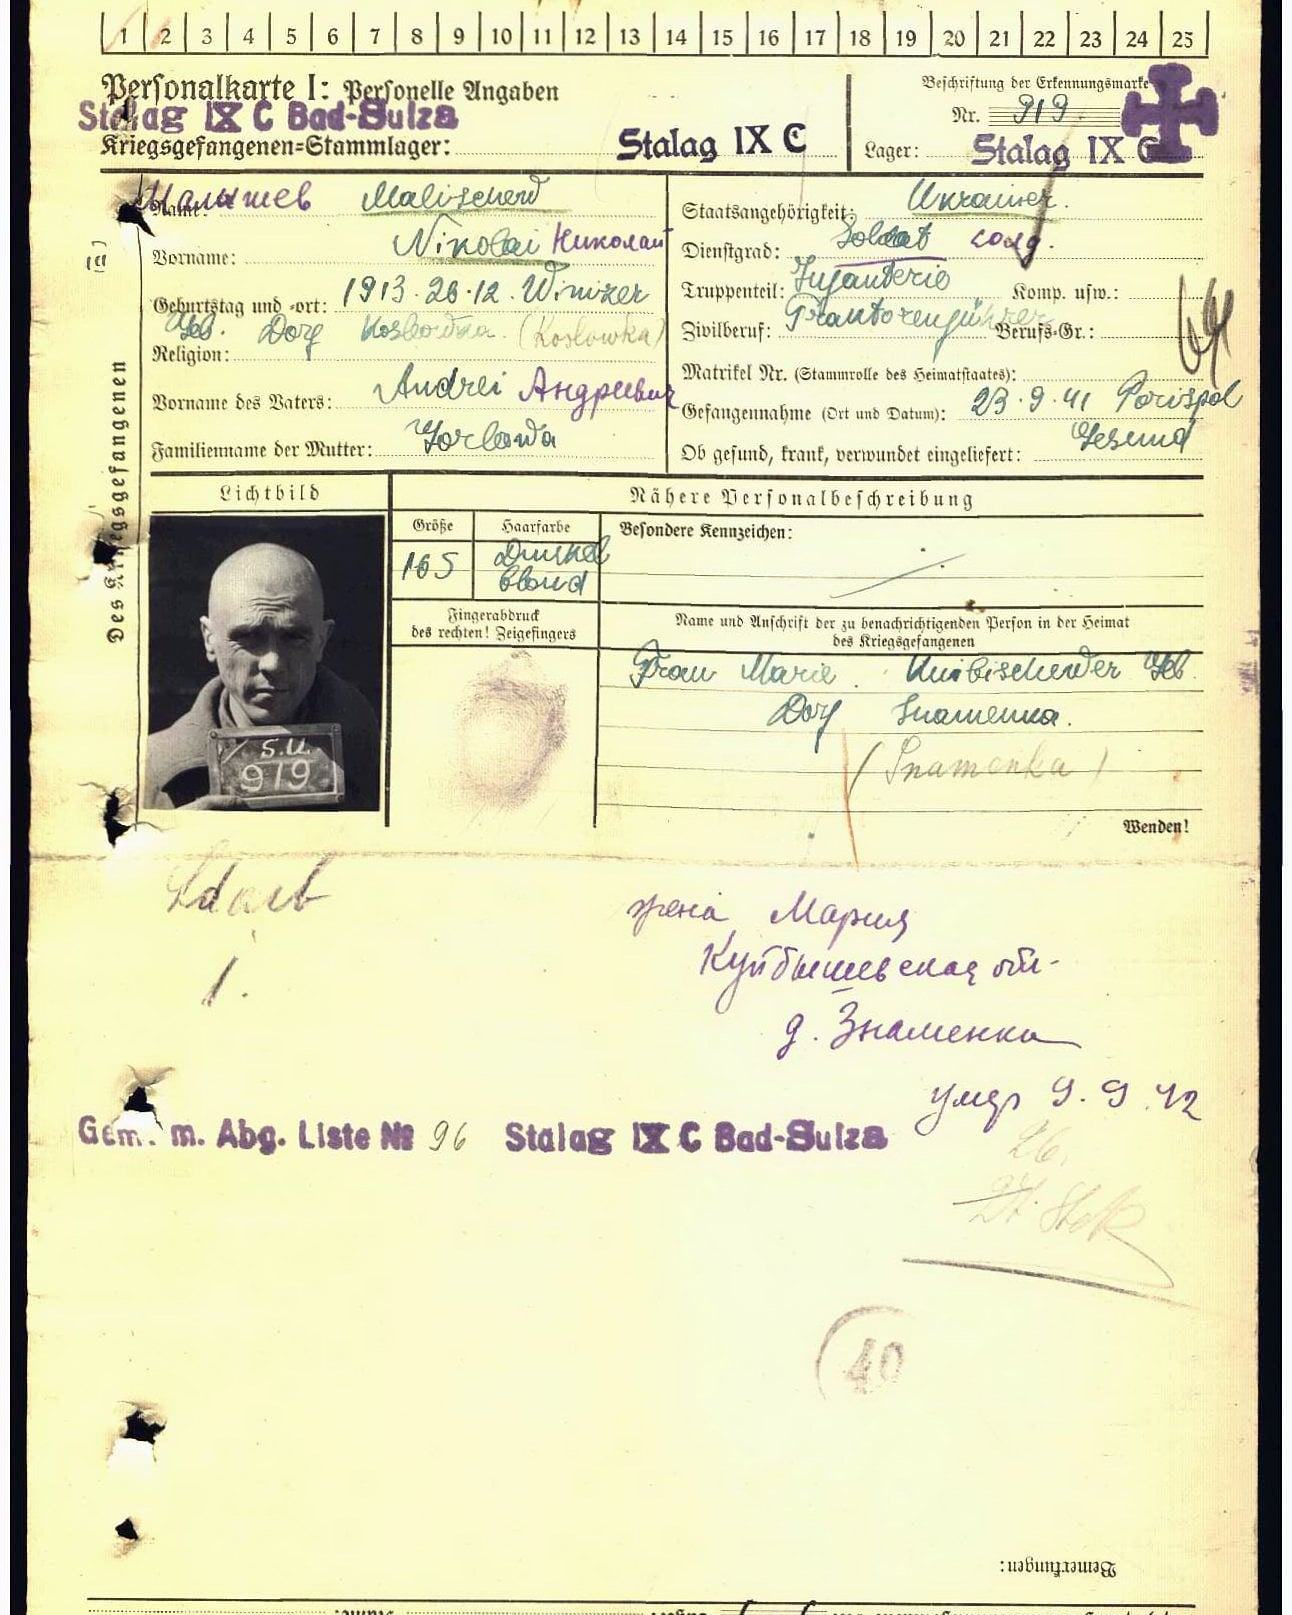 1 2 3 4 5 6 7 8 9 10 11 12 13 14 15 16 17 18 19 20 21 22 23 24 25
Personalkarte I: Personelle Angaben
Stalag IX C Bad-Sulza
Kriegsgefangenen=Stammlager: Stalag IX C
Beschriftung der Erkennungsmarke
Nr. 919.
Lager: Stalag IX C
Des Kriegsgefangenen
Name: Малышев Malischew
Vorname: Nikolai Николай
Geburtstag und =ort: 1913.26.12. Winizer
Geb. Dorf Koslowka (Koslowka)
Religion:
Vorname des Vaters: Andrei Андреевич
Familienname der Mutter: Gorlowa
Staatsangehörigkeit: Ukrainer.
Dienstgrad: Soldat солд.
Truppenteil: Infanterie Komp. usw.:
Zivilberuf: Traktorenführer Berufs=Gr.:
Matrikel Nr. (Stammrolle des Heimatstaates):
Gefangennahme (Ort und Datum): 23.9.41 Porispol
Ob gesund, krank, verwundet eingeliefert: Gesund
Lichtbild
S.U.
919
Nähere Personalbeschreibung
Größe Haarfarbe Besondere Kennzeichen:
165 Dunkel
blond
Fingerabdruck
des rechten! Zeigefingers
Name und Anschrift der zu benachrichtigenden Person in der Heimat
des Kriegsgefangenen
Frau Marie Kuibischewer Geb.
Dorf Snamenka.
(Snamenka)
Wenden!
1.
жена Мария
Куйбышевская обл-
д. Знаменка
умер 9.9.42
Gem. m. Abg. Liste № 96 Stalag IX C Bad-Sulza
26.
40
Bemerkungen:
Name: